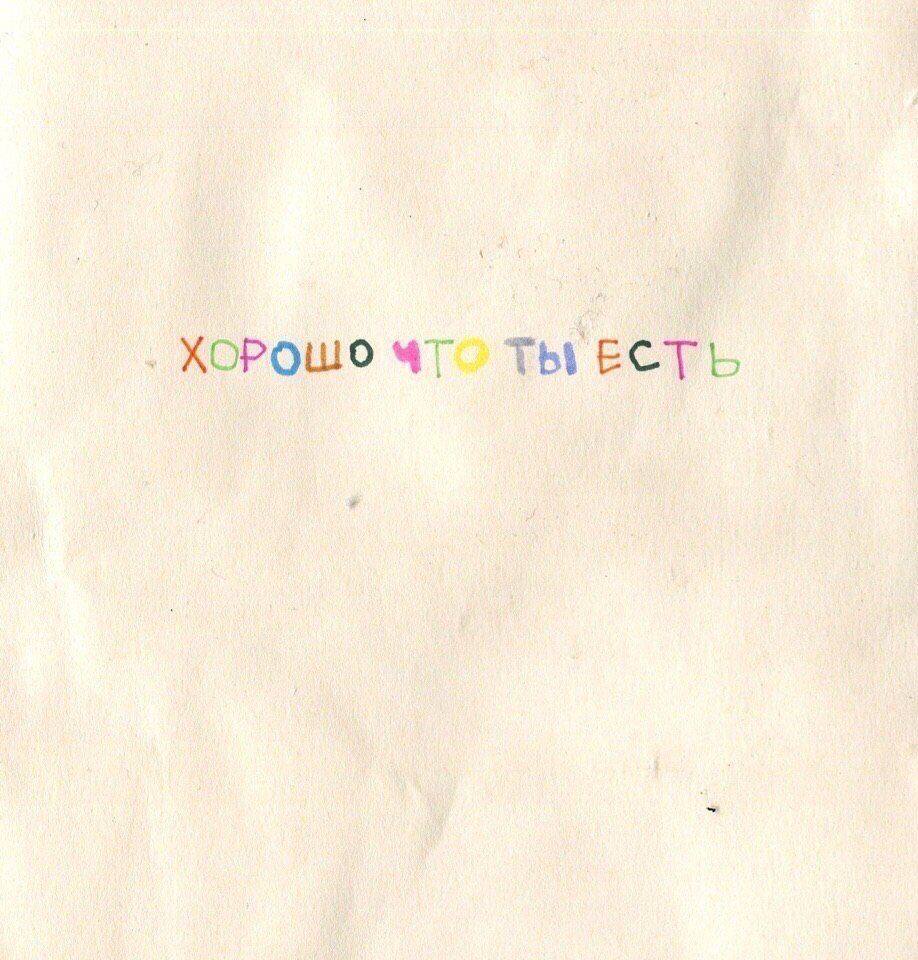 ХОРОШО ЧТО ТЫ ЕСТЬ